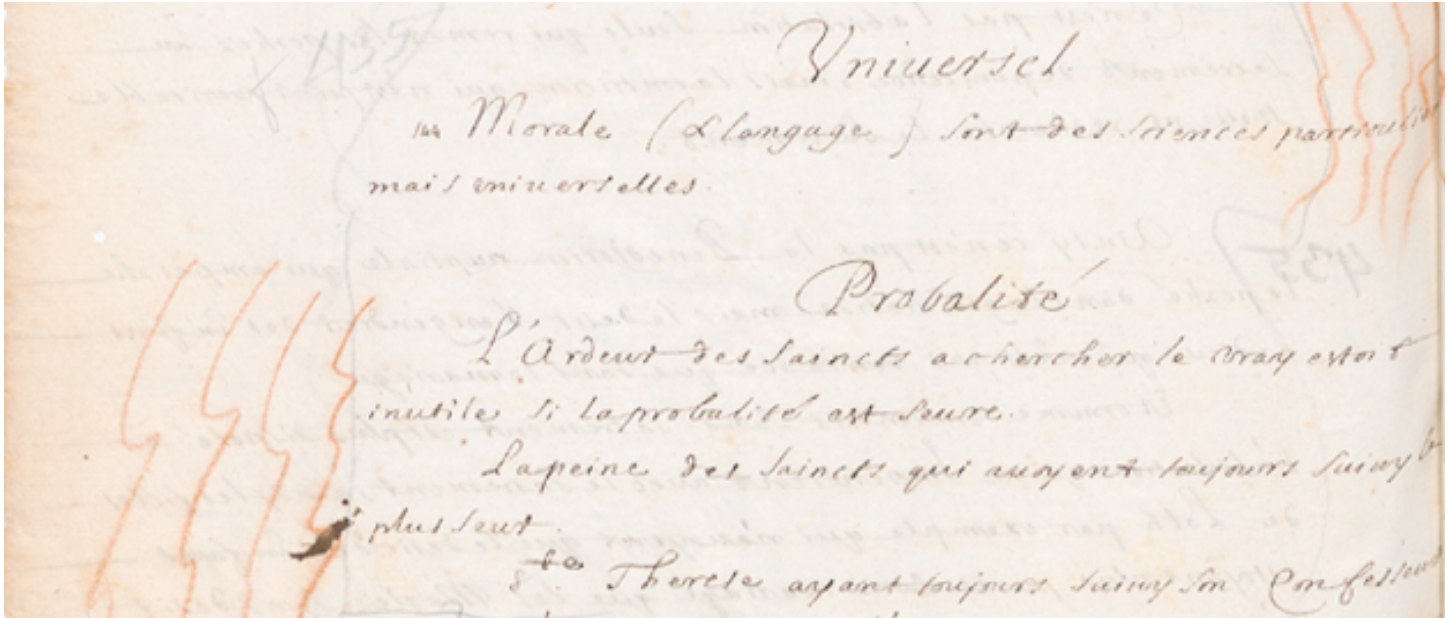 Vniuersel
Morale (& langage) sont des sciences particulie
mais vniuerselles.
Probalité
L'Ardeur des saincts a chercher le vray estoit
inutile si la probalité est seure.
La peine des saincts qui auoyent toujours suiuy le
plus seur.
Ste Therese ayant toujours suiuy son Confesseur